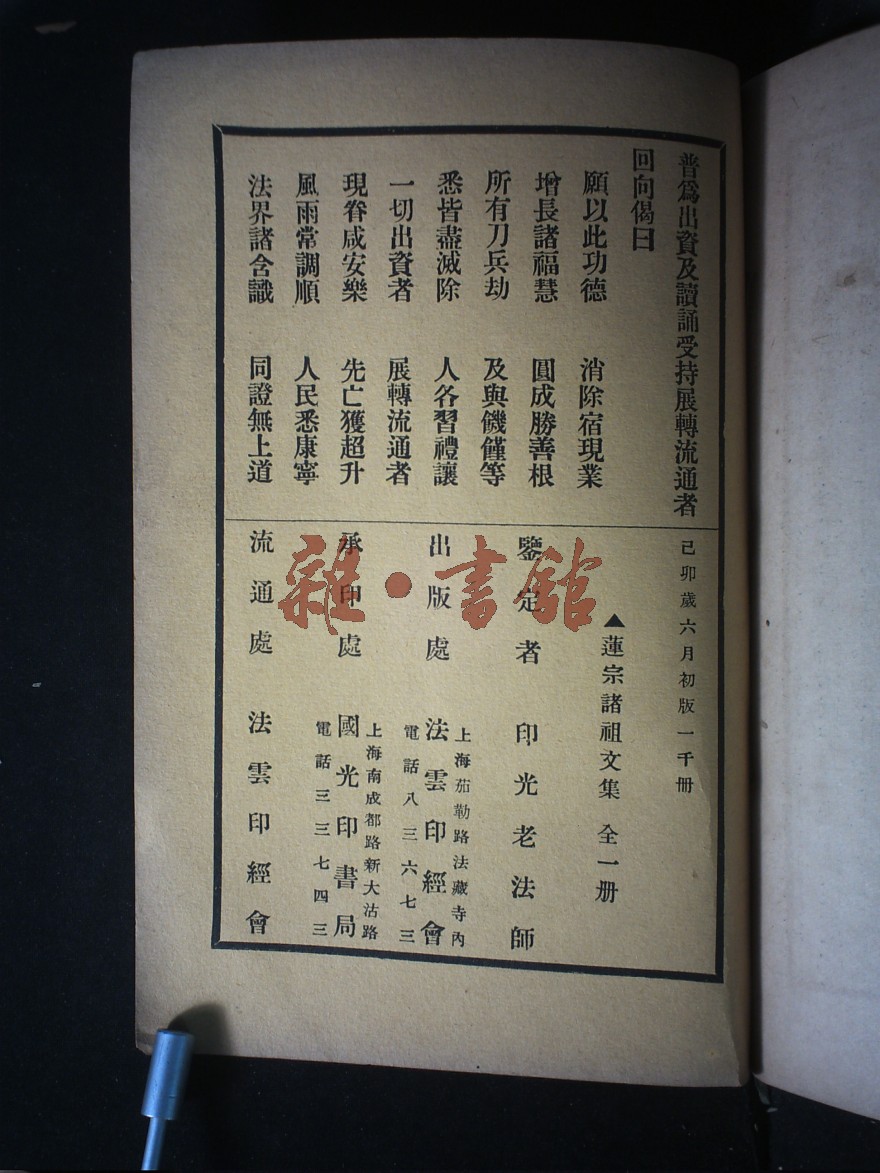 普爲出資及讀誦受持展轉流通者
回向偈曰
願以此功德 消除宿現業
增長諸福慧 圓成勝善根
所有刀兵劫 及與饑饉等
悉皆盡滅除 人各習禮讓
一切出資者 展轉流通者
現眷咸安樂 先亡獲超升
風雨常調順 人民悉康寧
法界諸含識 同證無上道
己卯歲六月初版一千册
▲蓮宗諸祖文集 全一册
鑒定者 印光老法師
上海茄勒路法藏寺內
出版處 法雲印經會
電話八三六七三
上海南成都路新大沽路
承印處 國光印書局
電話三三七四三
流通處 法雲印經會
雜·書館